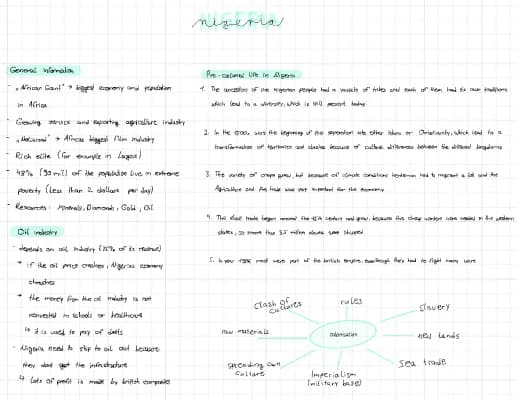 nigeria
General information
- „African Giant" → biggest economy and population
in Africa
- Growing service and exporting agriculture industry
- „Nollywood" → Africas biggest film industry
- Rich elite (for example in Lagos)
- 48% (90 mil) of the population live in extreme
poverty (Less than 2 dollars per day)
- Resources: Minerals, Diamonds, Gold, Oil
Oil industry
- depends on oil industry (75% of its revenue)
→ if the oil price crashes, Nigerias economy
crashes
→ the money from the oil industry is not
reinvested in schools or healthcare
↳ it is used to pay of debts
- Nigeria need to ship to oil out because
they dont got the infrastructure
↳ lots of profit is made by british companies
Pre-colonial life in Nigeria
1. The ancestors of the nigerian people had a variety of tribes and each of them had its own traditions
which lead to a diversity, which is still present today
2. In the 1500s was the beginning of the seperation into either Islam or Christianity, which lead to a
transformation of territories and clashes because of cultural differences between the different
3. The variety of crops grew, but because of climate conditions herdsmen had to migrant a lot and the
Agriculture and the trade was very important for the economy
4. The slave trade began around the 15th century and grew, because the cheap workers were needed in the western
states, so more than 3.5 million slaves were shipped
5. In year most were part of the british empire, eventhough they had to fight many wars
Clash Of
Cultures
rules
slavery
raw materials
colonisation
new lands
spreading own
culture
Imperialism
(military base)
sea trade